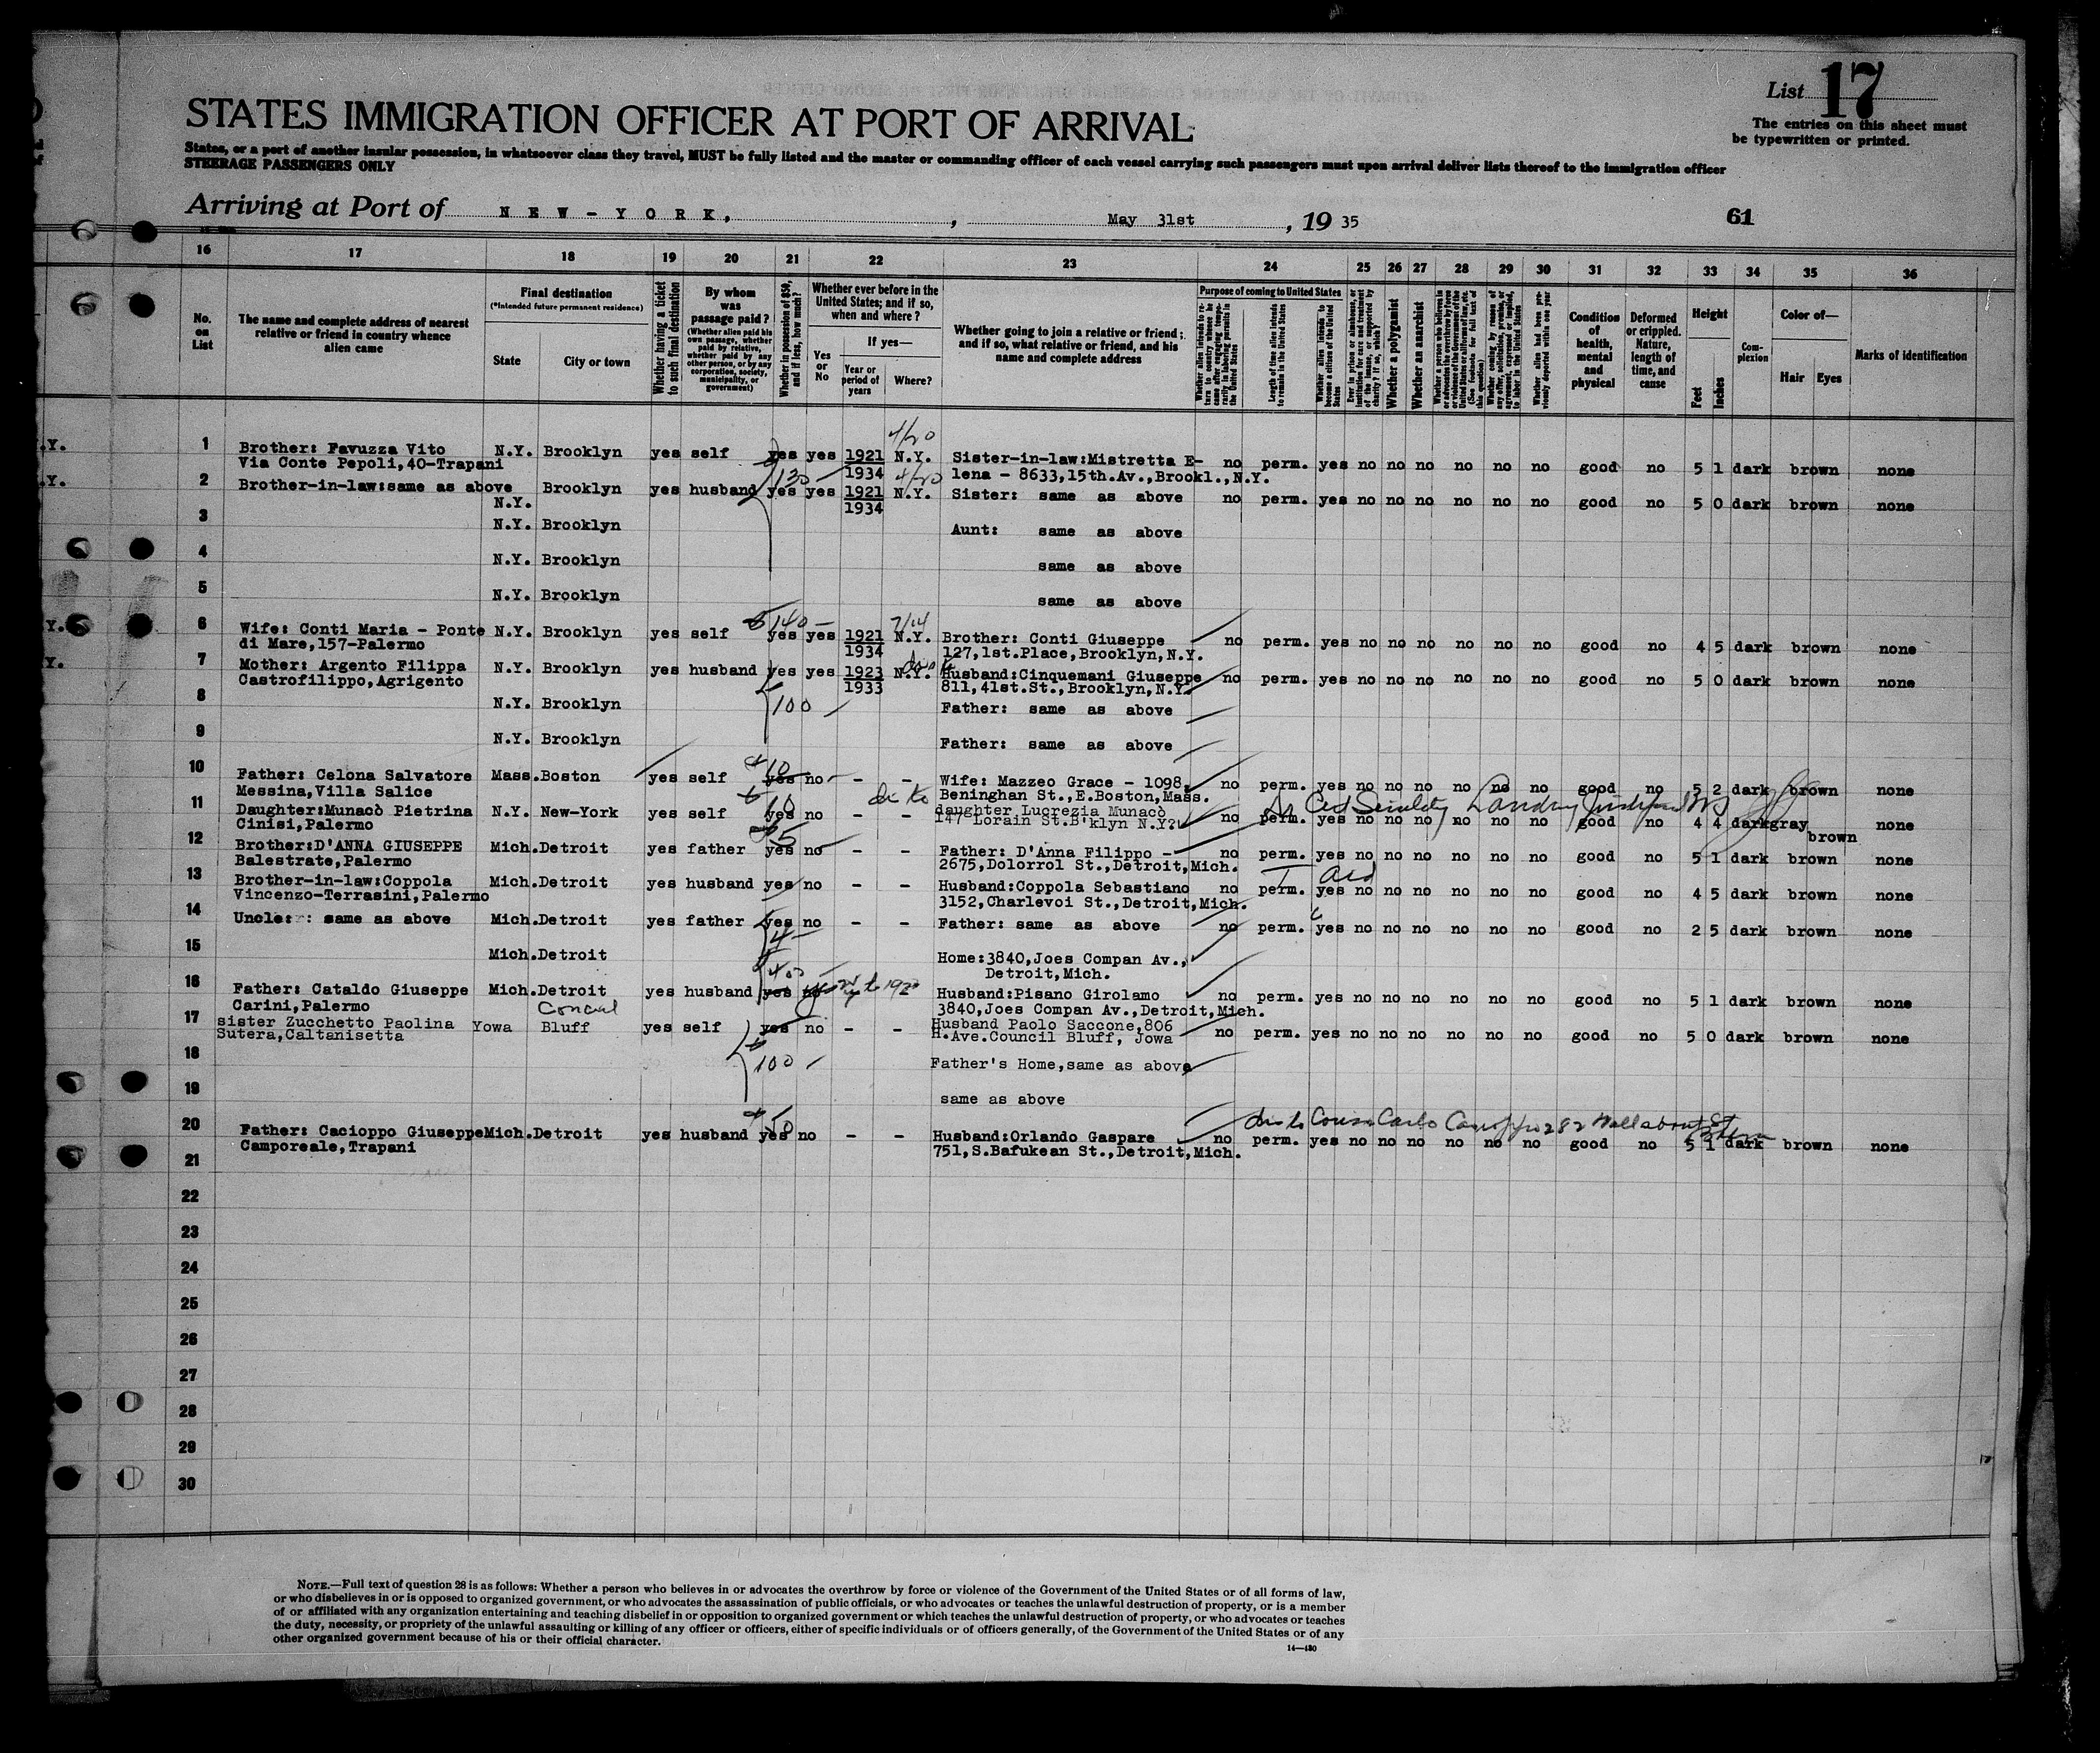 List 17
The entries on this sheet must
be typewritten or printed.
STATES IMMIGRATION OFFICER AT PORT OF ARRIVAL
States, or a port of another insular possession, in whatsoever class they travel, MUST be fully listed and the master or commanding officer of each vessel carrying such passengers must upon arrival deliver lists thereof to the immigration officer
STEERAGE PASSENGERS ONLY
Arriving at Port of NEW-YORK, , May 31st , 19 35
61
16 17 18 19 20 21 22 23 24 25 26 27 28 29 30 31 32 33 34 35 36
No. on List
The name and complete address of nearest relative or friend in country whence alien came
Final destination
(*Intended future permanent residence)
State
City or town
Whether having a ticket to such final destination
By whom was passage paid?
(Whether alien paid his own passage, whether paid by relative, whether paid by any other person, or by any corporation, society, municipality, or government)
Whether in possession of $50, and if less, how much?
Whether ever before in the United States; and if so, when and where?
Yes or No
If yes—
Year or period of years
Where?
Whether going to join a relative or friend; and if so, what relative or friend, and his name and complete address
Purpose of coming to United States
Length of time alien intends to remain in the United States
Whether alien intends to become a citizen of the United States
Whether a polygamist
Whether an anarchist
Condition of health, mental and physical
Deformed or crippled. Nature, length of time, and cause
Height
Feet
Inches
Complexion
Color of—
Hair
Eyes
Marks of identification
4/20
1 Brother: Favuzza Vito N.Y. Brooklyn yes self yes yes 1921 N.Y. Sister-in-law:Mistretta E- no perm. yes no no no no no no good no 5 1 dark brown none
Via Conte Pepoli,40-Trapani 130 1934 4/20 lena - 8633,15th.Av.,Brookl.,N.Y.
2 Brother-in-law:same as above Brooklyn yes husband yes yes 1921 N.Y. Sister: same as above no perm. yes no no no no no no good no 5 0 dark brown none
N.Y. 1934
3 N.Y. Brooklyn Aunt: same as above
4 N.Y. Brooklyn same as above
5 N.Y. Brooklyn same as above
140 7/14
6 Wife: Conti Maria - Ponte N.Y. Brooklyn yes self yes yes 1921 N.Y. Brother: Conti Giuseppe no perm. yes no no no no no no good no 4 5 dark brown none
di Mare,157-Palermo 1934 127,1st.Place,Brooklyn,N.Y.
7 Mother: Argento Filippa N.Y. Brooklyn yes husband yes yes 1923 N.Y. Husband:Cinquemani Giuseppe no perm. yes no no no no no no good no 5 0 dark brown none
Castrofilippo,Agrigento 1933 811,41st.St.,Brooklyn,N.Y.
8 N.Y. Brooklyn 100 Father: same as above
9 N.Y. Brooklyn Father: same as above
10
10 Father: Celona Salvatore Mass.Boston yes self yes no - - Wife: Mazzeo Grace - 1098, no perm. yes no no no no no no good no 5 2 dark brown none
Messina,Villa Salice Beningham St.,E.Boston,Mass.
11 Daughter:Munacò Pietrina N.Y. New-York yes self yes no - - daughter Lucrezia Munacò no perm. yes no no no no no no good no 4 4 dark gray none
Cinisi,Palermo 147 Lorain St.B'klyn N.Y. brown
12 Brother:D'ANNA GIUSEPPE Mich.Detroit yes father yes no - - Father: D'Anna Filippo - no perm. yes no no no no no no good no 5 1 dark brown none
Balestrate,Palermo 2675,Dolorrol St.,Detroit,Mich.
13 Brother-in-law:Coppola Mich.Detroit yes husband yes no - - Husband:Coppola Sebastiano no perm. yes no no no no no no good no 4 5 dark brown none
Vincenzo-Terrasini,Palermo 3152,Charlevoi St.,Detroit,Mich.
14 Uncle: : same as above Mich.Detroit yes father yes no - - Father: same as above no perm. yes no no no no no no good no 2 5 dark brown none
15 Mich.Detroit Home:3840,Joes Compan Av.,
Detroit,Mich.
16 Father: Cataldo Giuseppe Mich.Detroit yes husband yes Husband:Pisano Girolamo no perm. yes no no no no no no good no 5 1 dark brown none
Carini,Palermo 3840,Joes Compan Av.,Detroit,Mich.
17 sister Zucchetto Paolina Yowa Bluff yes self yes no - - Husband Paolo Saccone,806 no perm. yes no no no no no no good no 5 0 dark brown none
Sutera,Caltanisetta H.Ave.Council Bluff, Jowa
18 100 Father's Home,same as above
19 same as above
20 Father: Cacioppo Giuseppe Mich.Detroit yes husband yes no - - Husband:Orlando Gaspare no perm. yes no no no no no no good no 5 1 dark brown none
Camporeale,Trapani 751,S.Bafukean St.,Detroit,Mich.
21
22
23
24
25
26
27
28
29
30
NOTE.—Full text of question 28 is as follows: Whether a person who believes in or advocates the overthrow by force or violence of the Government of the United States or of all forms of law,
or who disbelieves in or is opposed to organized government, or who advocates the assassination of public officials, or who advocates or teaches the unlawful destruction of property, or is a member
of or affiliated with any organization entertaining and teaching disbelief in or opposition to organized government or which teaches the unlawful destruction of property, or who advocates or teaches
the duty, necessity, or propriety of the unlawful assaulting or killing of any officer or officers, either of specific individuals or of officers generally, of the Government of the United States or of any
other organized government because of his or their official character.
14—430